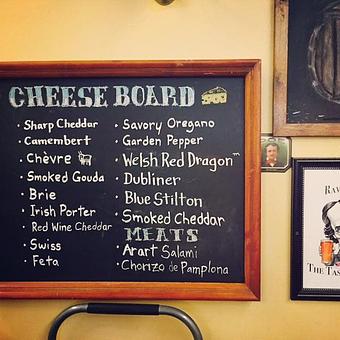 CHEESE BOARD
· Sharp Cheddar
· Camembert
· Chèvre
· Smoked Gouda
· Brie
· Irish Porter
· Red Wine Cheddar
· Swiss
· Feta
· Savory Oregano
· Garden Pepper
· Welsh Red Dragon™
· Dubliner
· Blue Stilton
· Smoked Cheddar
MEATS
· Arart Salami
· Chorizo de Pamplona
RAV
THE TAS